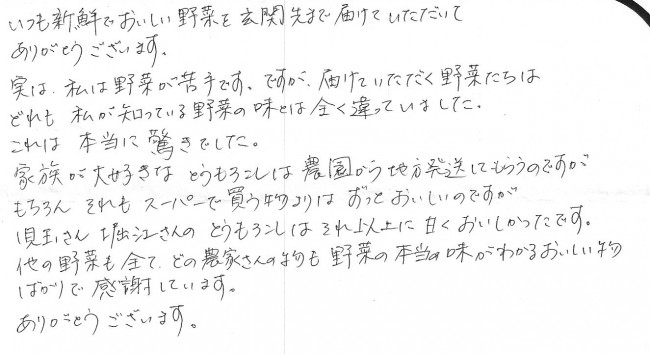 いつも新鮮でおいしい野菜を玄関先まで届けていただいて
ありがとうございます。
実は、私は野菜が苦手です。ですが、届けていただく野菜たちは
どれも 私が知っている野菜の味とは全く違っていました。
これは 本当に驚きでした。
家族が大好きな とうもろこしは 農園から地方発送してもらうのですが
もちろん それも スーパーで買う物よりは ずっと おいしいのですが
児玉さん 堀江さんの とうもろこしは それ以上に 甘く おいしかったです。
他の野菜も 全て、どの農家さんの物も 野菜の本当の味がわかるおいしい物
ばかりで 感謝しています。
ありがとうございます。